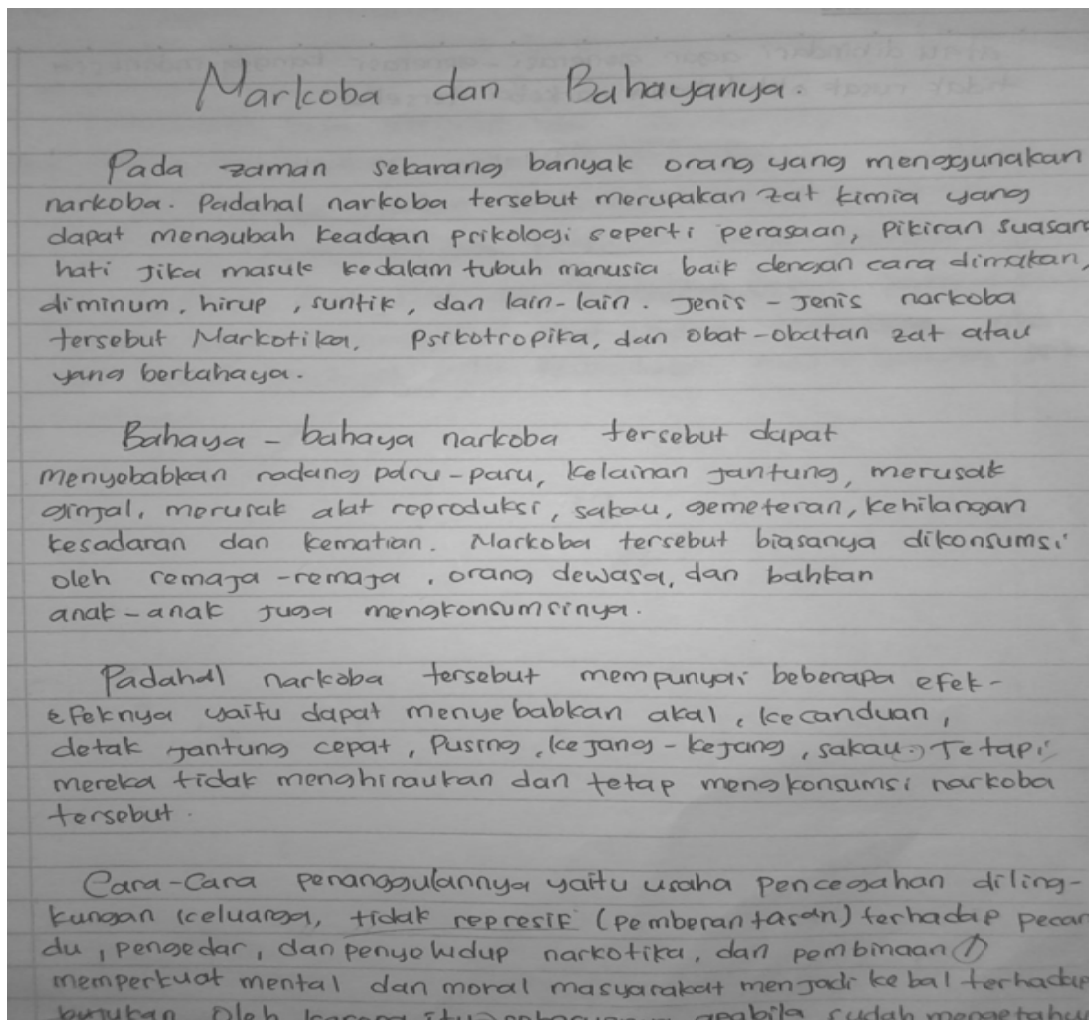 Narkoba dan Bahayanya.
Pada zaman sekarang banyak orang yang menggunakan
narkoba. Padahal narkoba tersebut merupakan zat kimia yang
dapat mengubah keadaan psikologi seperti perasaan, pikiran suasan
hati jika masuk kedalam tubuh manusia baik dengan cara dimakan,
diminum, hirup, suntik, dan lain-lain. Jenis - Jenis narkoba
tersebut Narkotika, Psikotropika, dan obat-obatan zat atau
yang berbahaya.
Bahaya - bahaya narkoba tersebut dapat
menyebabkan radang paru-paru, kelainan jantung, merusak
ginjal, merusak alat reproduksi, sakau, gemeteran, kehilangan
kesadaran dan kematian. Narkoba tersebut biasanya dikonsumsi
oleh remaja-remaja, orang dewasa, dan bahkan
anak-anak juga mengkonsumsinya.
Padahal narkoba tersebut mempunyai beberapa efek-
efeknya yaitu dapat menyebabkan akal, kecanduan,
detak jantung cepat, Pusing, kejang-kejang, sakau. Tetapi
mereka tidak menghiraukan dan tetap mengkonsumsi narkoba
tersebut.
Cara-Cara penanggulannya yaitu usaha pencegahan diling-
kungan keluarga, tidak represif (pemberantasan) terhadap pecan
du, pengedar, dan penyeludup narkotika, dan pembinaan
memperkuat mental dan moral masyarakat menjadi kebal terhadap
Oleh karena itu apabila sudah mengetahu